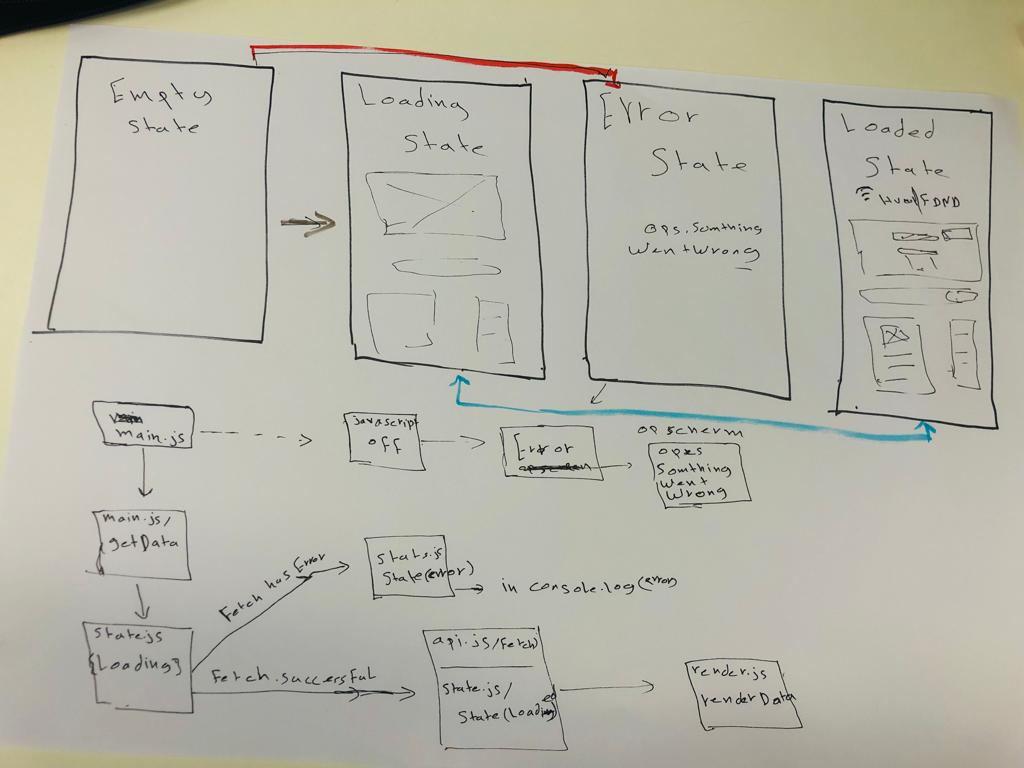 Empty
state
Loading
State
Error
State
ops, Somthing
Went Wrong
Loaded
State
/FDND
main.js
javascript
off
Error
opscherm
opes
Somthing
Went
Wrong
main.js/
getData
state.js
{Loading}
Fetch has Error
State(error)
in console.log(error)
Fetch.successful
api.js/Fetch)
state.js/
State(Loaded
render.js
renderData